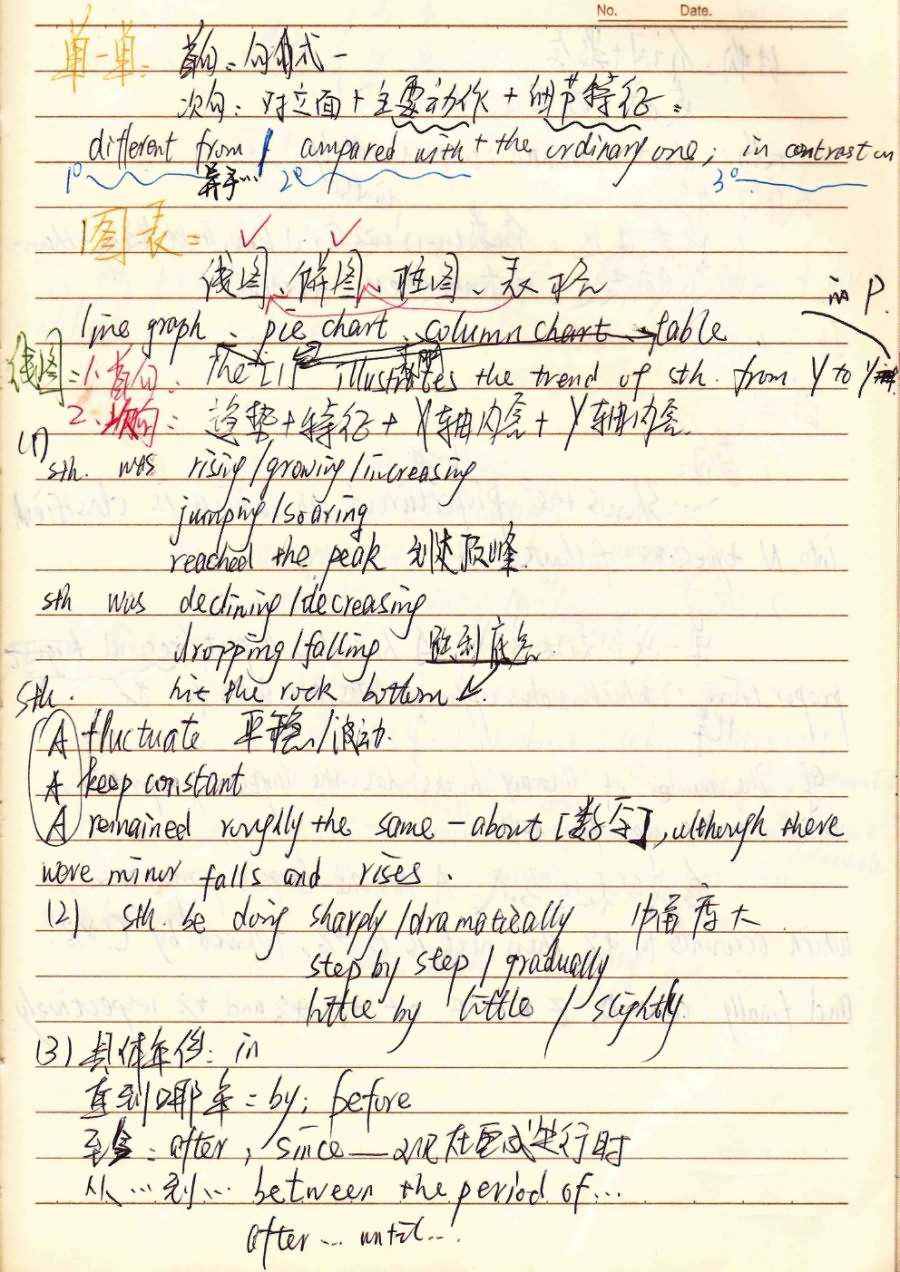 No. Date.
单一单: 首句:句式一
次句:对立面+主要动作+细节特征:
different from / compared with + the ordinary one; in contrast
1° 2° 3°
图表:
线图、饼图、柱图、表格
in P.
line graph、pie chart、column chart、table
线图:1.首句: The [ ] illustrates the trend of sth. from Y to Y
2.次句: 趋势+特征+X轴内容+Y轴内容.
(1)
sth. was rising/growing/increasing
jumping/soaring
reached the peak 到达顶峰.
sth was declining/decreasing
dropping/falling 跌到底谷.
sth. hit the rock bottom.
A fluctuate 平稳/波动.
A keep constant
A remained roughly the same - about [数字], although there
were minor falls and rises.
(2) sth. be doing sharply/dramatically 幅度大
step by step / gradually
little by little / slightly.
(3) 具体年份: in
直到哪年: by; before
至今: after; since — 现在完成进行时
从…到… between the period of...
after... until...